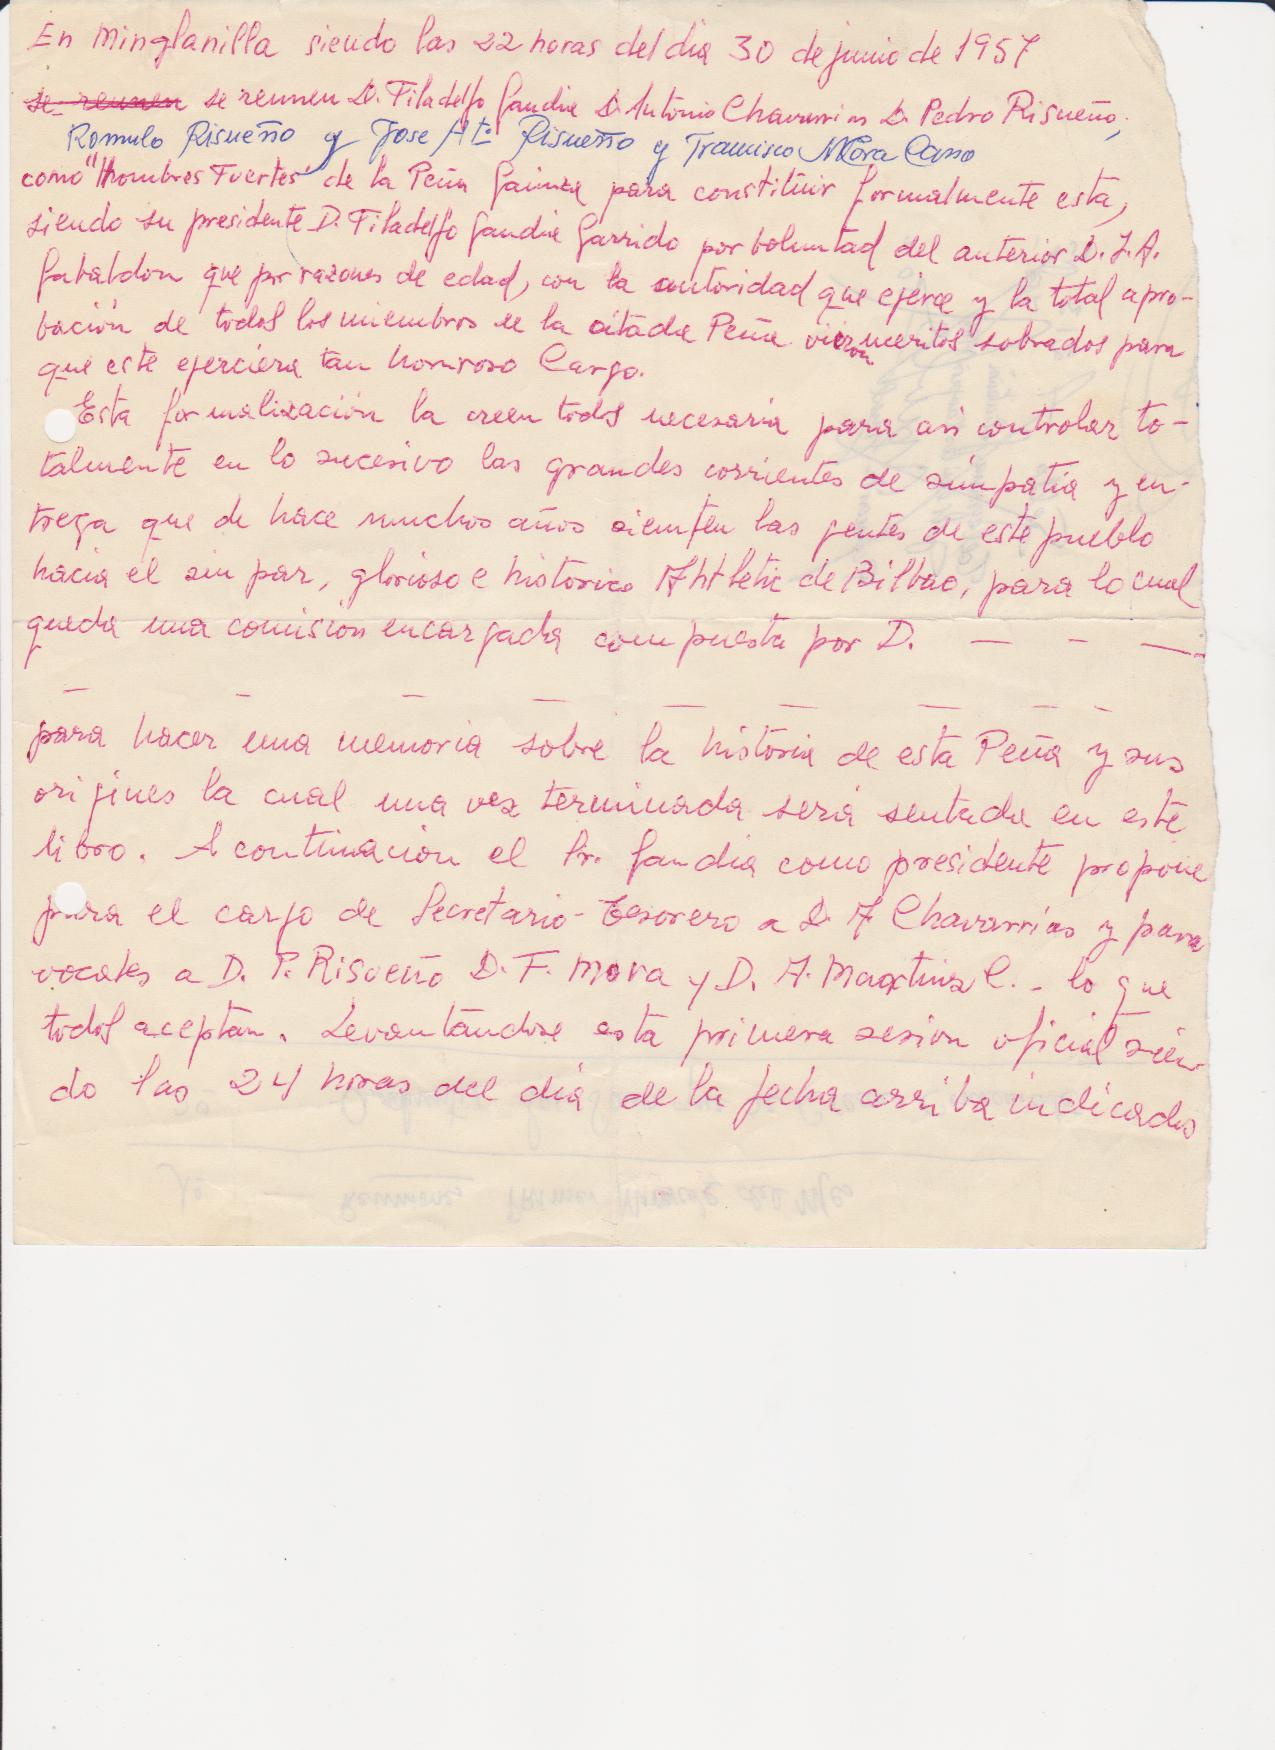 En Minglanilla siendo las 22 horas del dia 30 de junio de 1957
se reunen se reunen D. Filadelfo Gandia D. Antonio Chavarrias D. Pedro Risueño,
Romulo Risueño y Jose Ato Risueño y Francisco Mora Cano
como "Hombres Fuertes" de la Peña Gainza para constituir formalmente esta,
siendo su presidente D. Filadelfo Gandia Garrido por boluntad del anterior D. J. A.
Gabaldon que por razones de edad, con la autoridad que ejerce y la total apro-
bación de todos los miembros de la citada Peña vieron meritos sobrados para
que este ejerciera tan honroso Cargo.
Esta formalización la creen todos necesaria para asi controlar to-
talmente en lo sucesivo las grandes corrientes de simpatia y en-
trega que de hace muchos años sienten las gentes de este pueblo
hacia el sin par, glorioso e historico Athletic de Bilbao, para lo cual
queda una comision encargada compuesta por D. — - —
— — — — — — — — —
para hacer una memoria sobre la historia de esta Peña y sus
origines la cual una vez terminada será sentada en este
libro. A continuación el Sr. Gandia como presidente propone
para el cargo de Secretario-Tesorero a D. A Chavarrias y para
vocales a D. P. Risueño D. F. Mora y D. A. Martinez C. - lo que
todos aceptan. Levantándose esta primera sesion oficial sien-
do las 24 horas del dia de la fecha arriba indicados